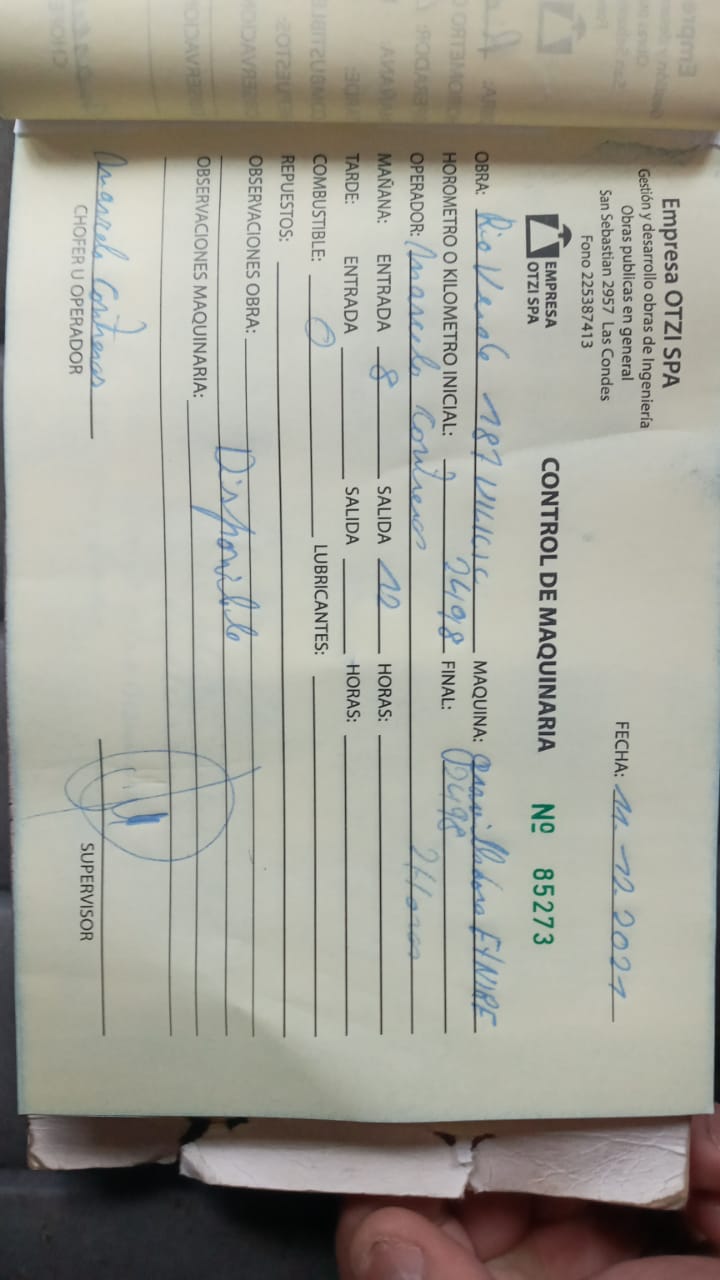 Empresa OTZI SPA
Gestión y desarrollo obras de Ingeniería
Obras publicas en general
San Sebastian 2957 Las Condes
Fono 225387413
FECHA: 11.12.2021
EMPRESA
OTZI SPA
CONTROL DE MAQUINARIA Nº 85273
OBRA: Rio Verde 187 VILICIC MAQUINA: gravilladora
HOROMETRO O KILOMETRO INICIAL: 2498 FINAL: 2498
OPERADOR: Marcelo Contreras 2 Horas
MAÑANA: ENTRADA 8 SALIDA 12 HORAS:
TARDE: ENTRADA SALIDA HORAS:
COMBUSTIBLE: 0 LUBRICANTES:
REPUESTOS:
OBSERVACIONES OBRA:
Disponible
OBSERVACIONES MAQUINARIA:
Marcelo Contreras
CHOFER U OPERADOR
SUPERVISOR